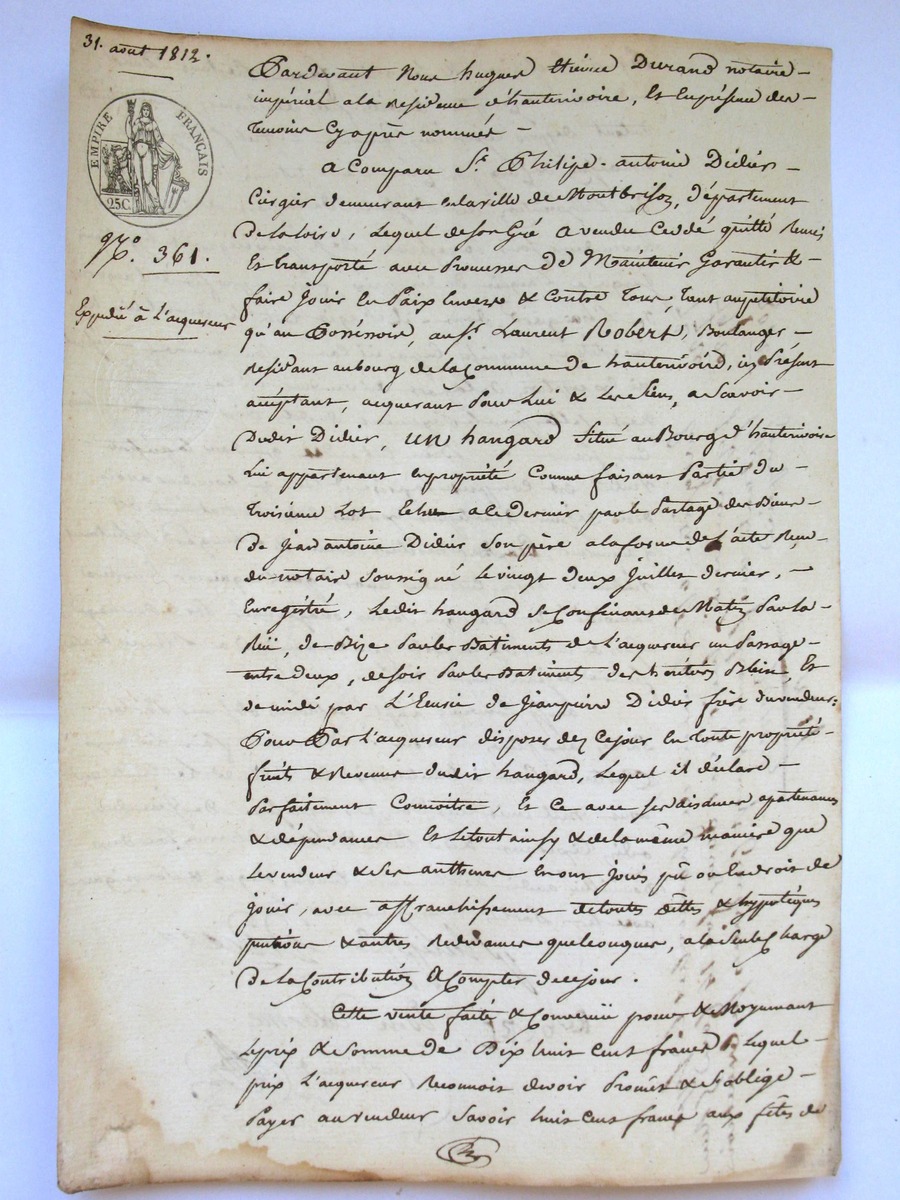 31. aout 1812.
EMPIRE FRANÇAIS
25 C.
N.° 361.
Expédié à L'acquereur
Pardevant Nous hugues Etienne Durand notaire
impérial a la Residence d'hauterivoire, Et En présence des
temoins Cyaprès nommés
a Comparu S.r Philipe-antoine Didier
Cirgier demeurant enlaville de Montbrison, département
delaloire, Lequel deson Gré a vendu Cedé quitté Remis
Et transporté avec Promesses de Maintenir Garantir &
faire Jouir En Paix Envers & Contre Tous, tant aupetitoire
qu'au Possessoire, au S.r Laurent Robert, Boulanger
Residant aubourg delaCommune de hauterivoire, icy Présent
acceptant, acquerant Pour Lui & Les siens, a Scavoir
Dudit Didier, un hangard Situé auBourg d'hauterivoire
Lui appartenant enpropriété Comme faisant Partie du
Troisieme Lot Echu a ledernier par le Partage des Biens
de Jean antoine Didier Son père alaforme de l'acte Reçu
du notaire Soussigné Levingt deux Juillet dernier,
Enregistré, Ledit hangard Se Confinant de Matin Parla
Rüe, de Bize Parles Batiments de L'acquereur un Passage
entre deux, desoir ParlesBatiments des heritiers Blein, Et
demidi par L'Ecurie de Jeanpierre Didier frère duvendeur:
Pour Par L'acquereur disposer dez Cejour En Toute propriété
fruits & Revenus dudit hangard, Lequel il déclare
Parfaitement Connoitre, Et Ce avec Ses aisances apartenances
& dépendances Et Letout ainsy & delamême maniere que
Levendeur & Ses autheurs En ont Joüi pû ou eudroit de
Jouir, avec affranchissement detoutes dettes & hypotèques
pensions & autres Redevances quelconques, alaSeule Charge
De la Contribution A Compter decejour.
Cette vente faite & Convenüe pour & Moyennant
Leprix & Somme de Dix huit Cent francs, Lequel
prix L'acquereur Reconnoit devoir Promet & S'oblige
Payer auvendeur Savoir huit Cent francs aux fêtes de